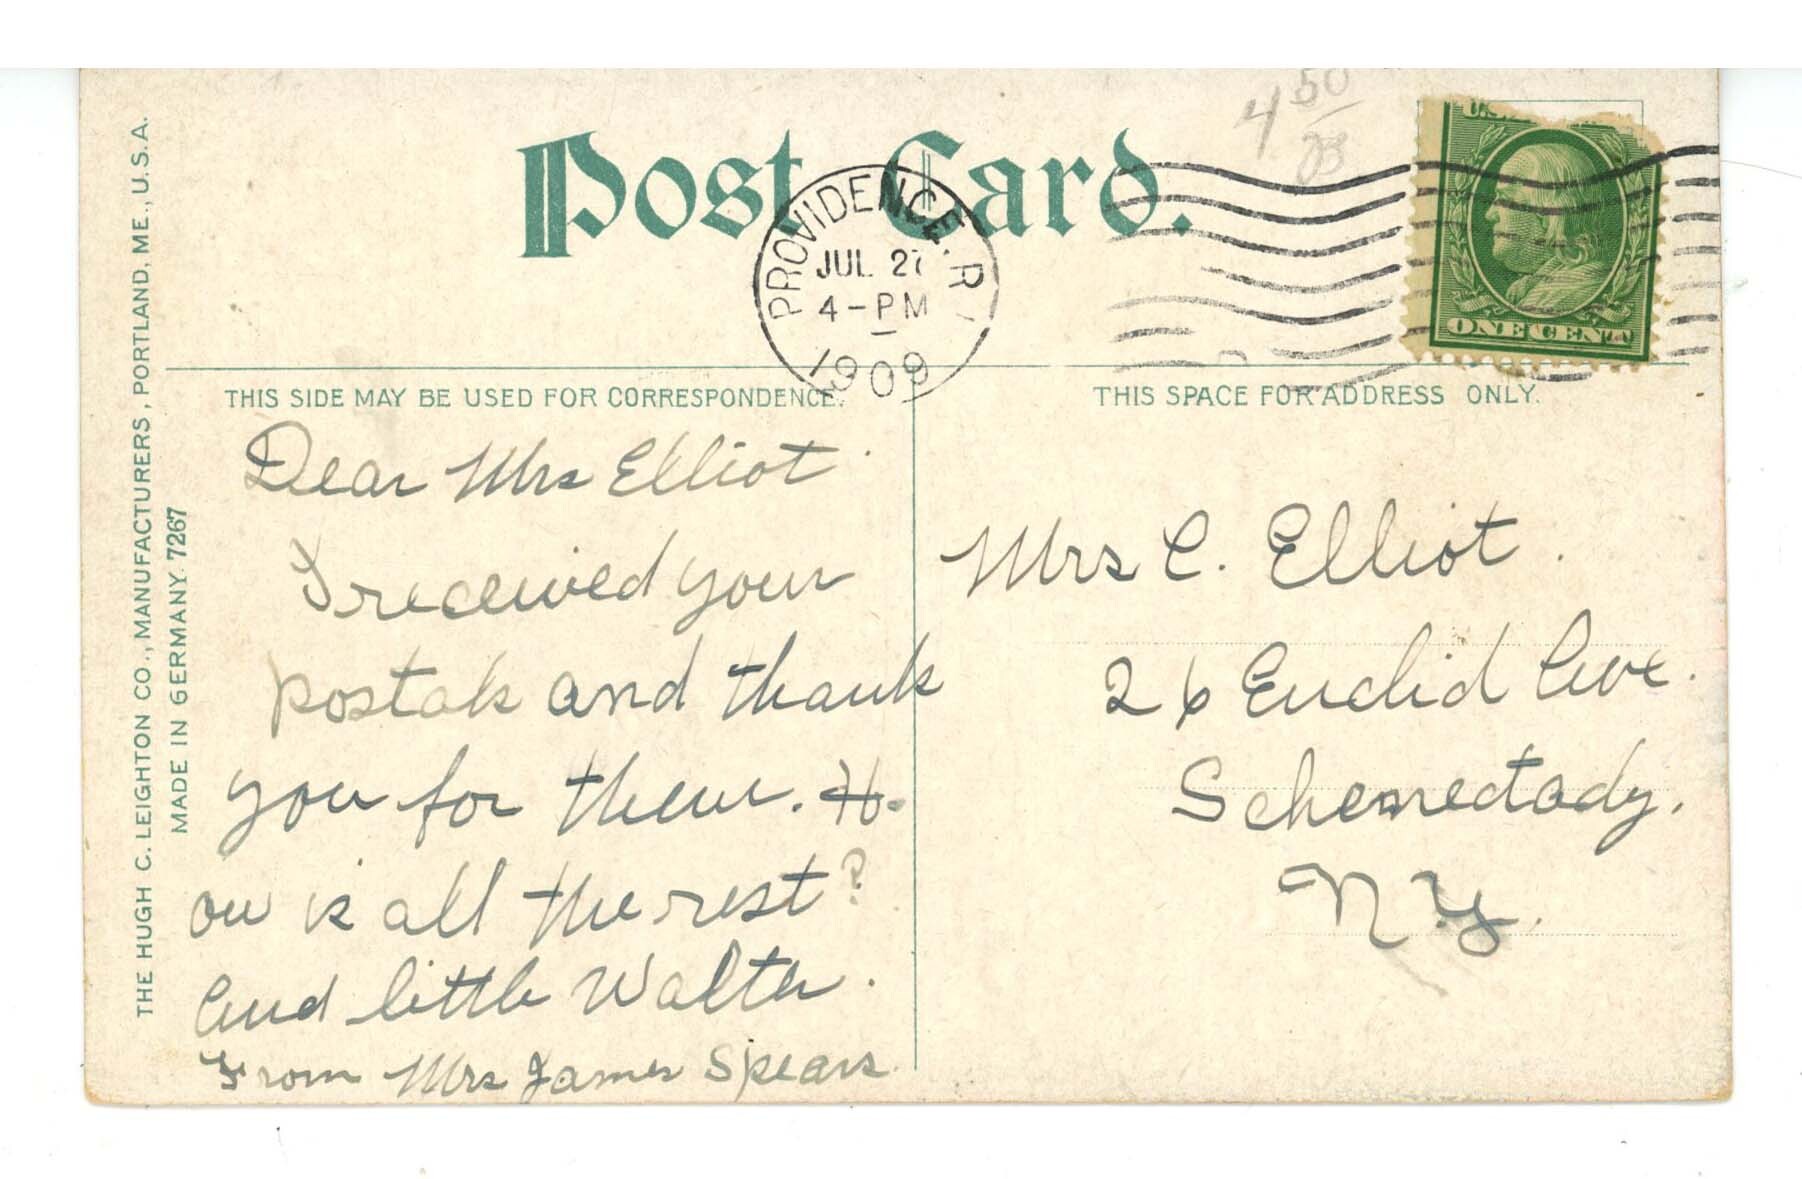 4 50
Post Card.
PROVIDENCE, R.I.
JUL 27
4-PM
1909
U.S.
ONE CENT
THIS SIDE MAY BE USED FOR CORRESPONDENCE.
THIS SPACE FOR ADDRESS ONLY.
THE HUGH C. LEIGHTON CO., MANUFACTURERS, PORTLAND, ME., U.S.A.
MADE IN GERMANY. 7267
Dear Mrs Elliot
I received your
postals and thank
you for them. H-
ow is all the rest?
And little Walter.
From Mrs James Spears
Mrs C. Elliot.
26 Euclid Ave.
Schenectady.
N.Y.